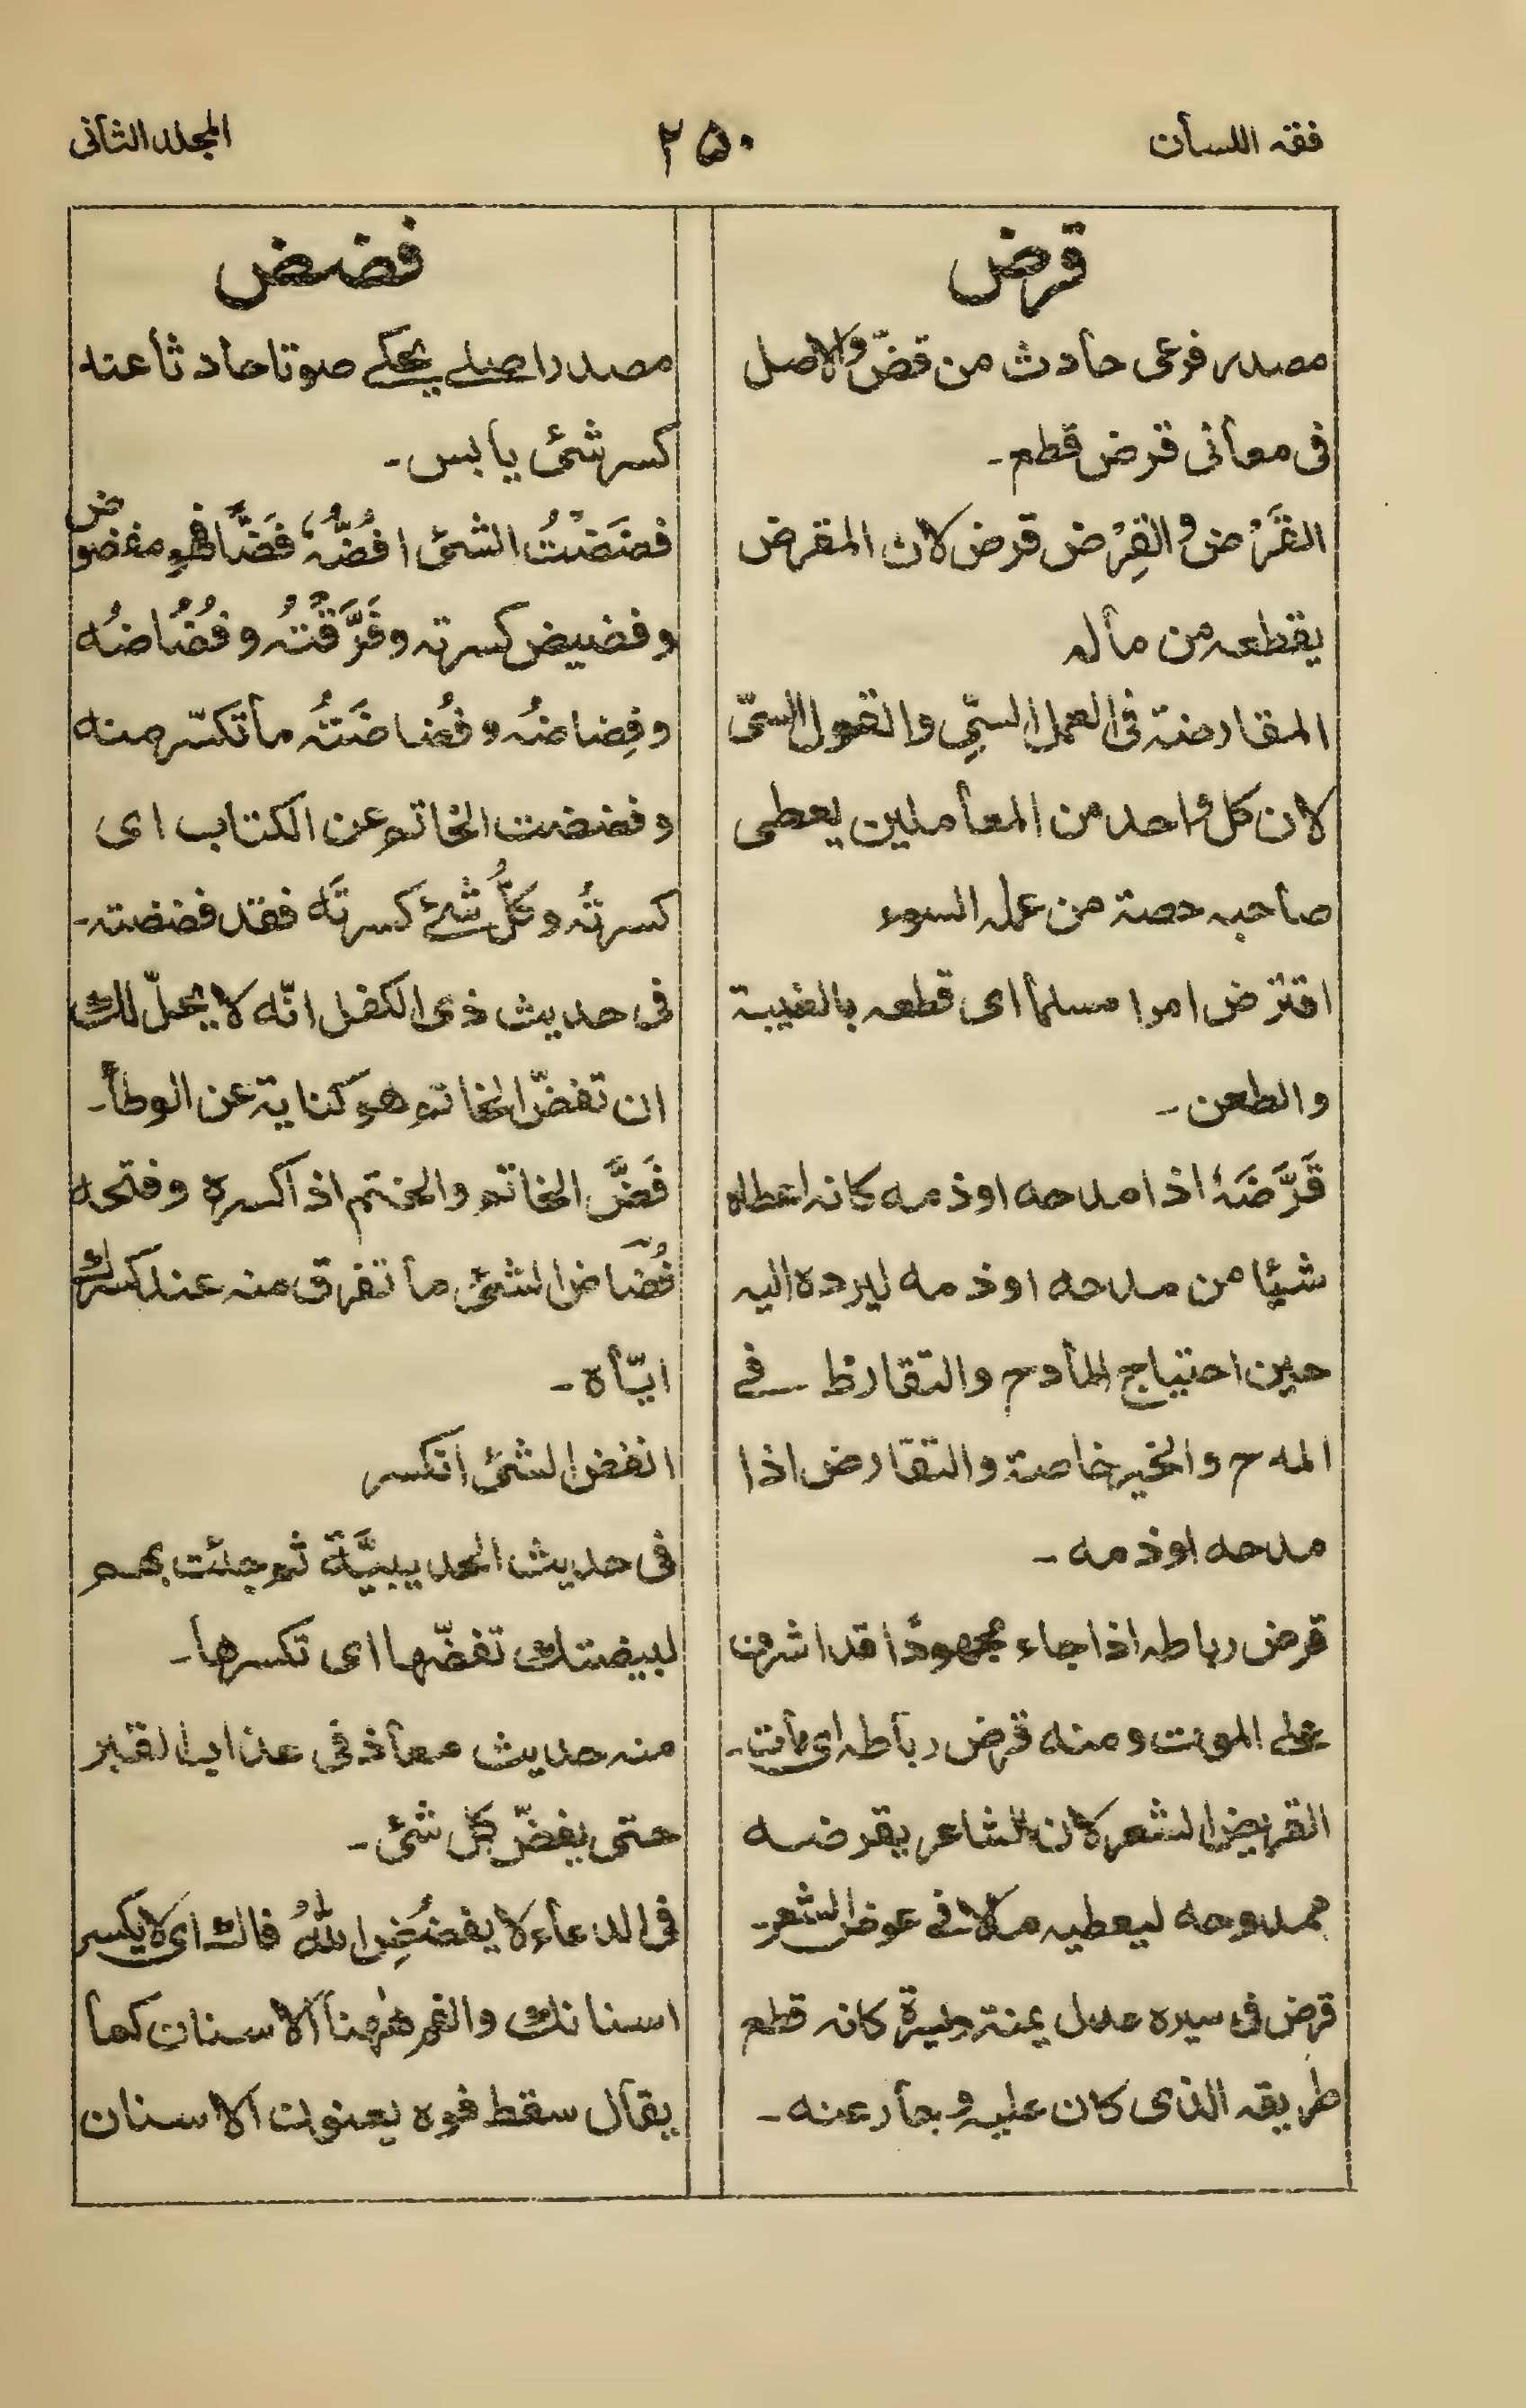 فقه اللسان
٢٥٠
المجلد الثانى
قرض
مصدر فرعى حادث من قضّ والاصل
فى معانى قرض قطع۔
القَرْض والقِرْض قرض لان المقرض
يقطعه من ماله
المقارضة فى العمل السيّء والقول السيّء
لان كل واحد من المعاملين يعطى
صاحبه حصة من عمله السوء
اقترض امرا مسلما اى قطعه بالغيبة
والطعن۔
قَرَّضَهٗ اذا مدحه او ذمه كانه اعطاه
شيئا من مدحه او ذمه ليرده اليه
حين احتياج المادح والتقارظ فے
المدح والخير خاصة والتقارض اذا
مدحه او ذمه۔
قرض رباطه اذا جاء مجهودًا قد اشرف
على الموت ومنه قرض رباطه اى مات۔
القريض الشعر لان الشاعر يقرضه
ممدوحه ليعطيه مالا فے عوض الشعر۔
قرض فى سيره عدل يمنة ويسرة كانه قطع
طريقه الذى كان عليه وجار عنه۔
فضض
مصدر اصلے يحكے صوتا حادثا عنه
كسر شئ يابس۔
فضَضْتُ الشئ افُضُّهٗ فَضًّا فهو مفضوض
وفضيض كسرته وفَرَّقْتُه وفُضُاضُه
وفِضاضُه وفُضاضَتُه ما تكسّر منه
وفضضت الخاتم عن الكتاب اى
كسرتُه وكلُّ شئ كسرتَه فقد فضضته۔
فى حديث ذى الكفل انّه لا يحلّ لك
ان تفضّ الخاتم هو كناية عن الوطأ۔
فَضَّ الخاتم والختم اذا كسره وفتحه
فُضَاض الشئ ما تفرق منه عند كسرك
ايّاه۔
انفض الشئ انكسر
فى حديث الحديبيَّة ثم جئت بهم
لبيضتك تفضّها اى تكسرها۔
منه حديث معاذ فى عذاب القبر
حتى يفضّ كل شئ۔
فى الدعاء لا يفضُضِ اللهُ فاك اى لا يكسر
اسنانك والفم ههنا الاسنان كما
يقال سقط فوه يعنون الاسنان